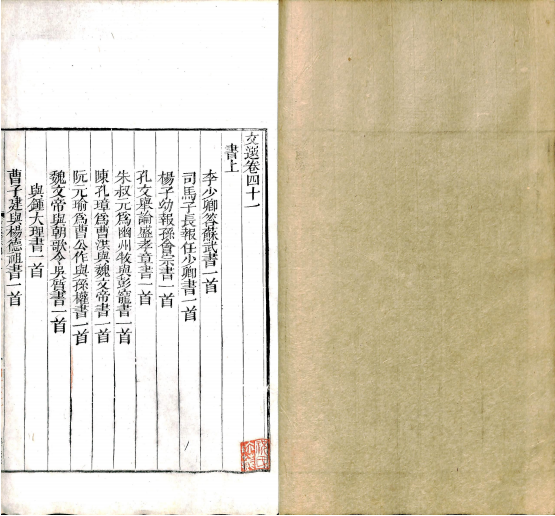 文選卷四十一
書上
李少卿答蘇武書一首
司馬子長報任少卿書一首
楊子幼報孫會宗書一首
孔文舉論盛孝章書一首
朱叔元爲幽州牧與彭寵書一首
陳孔璋爲曹洪與魏文帝書一首
阮元瑜爲曹公作與孫權書一首
魏文帝與朝歌令吳質書一首
與鍾大理書一首
曹子建與楊德祖書一首